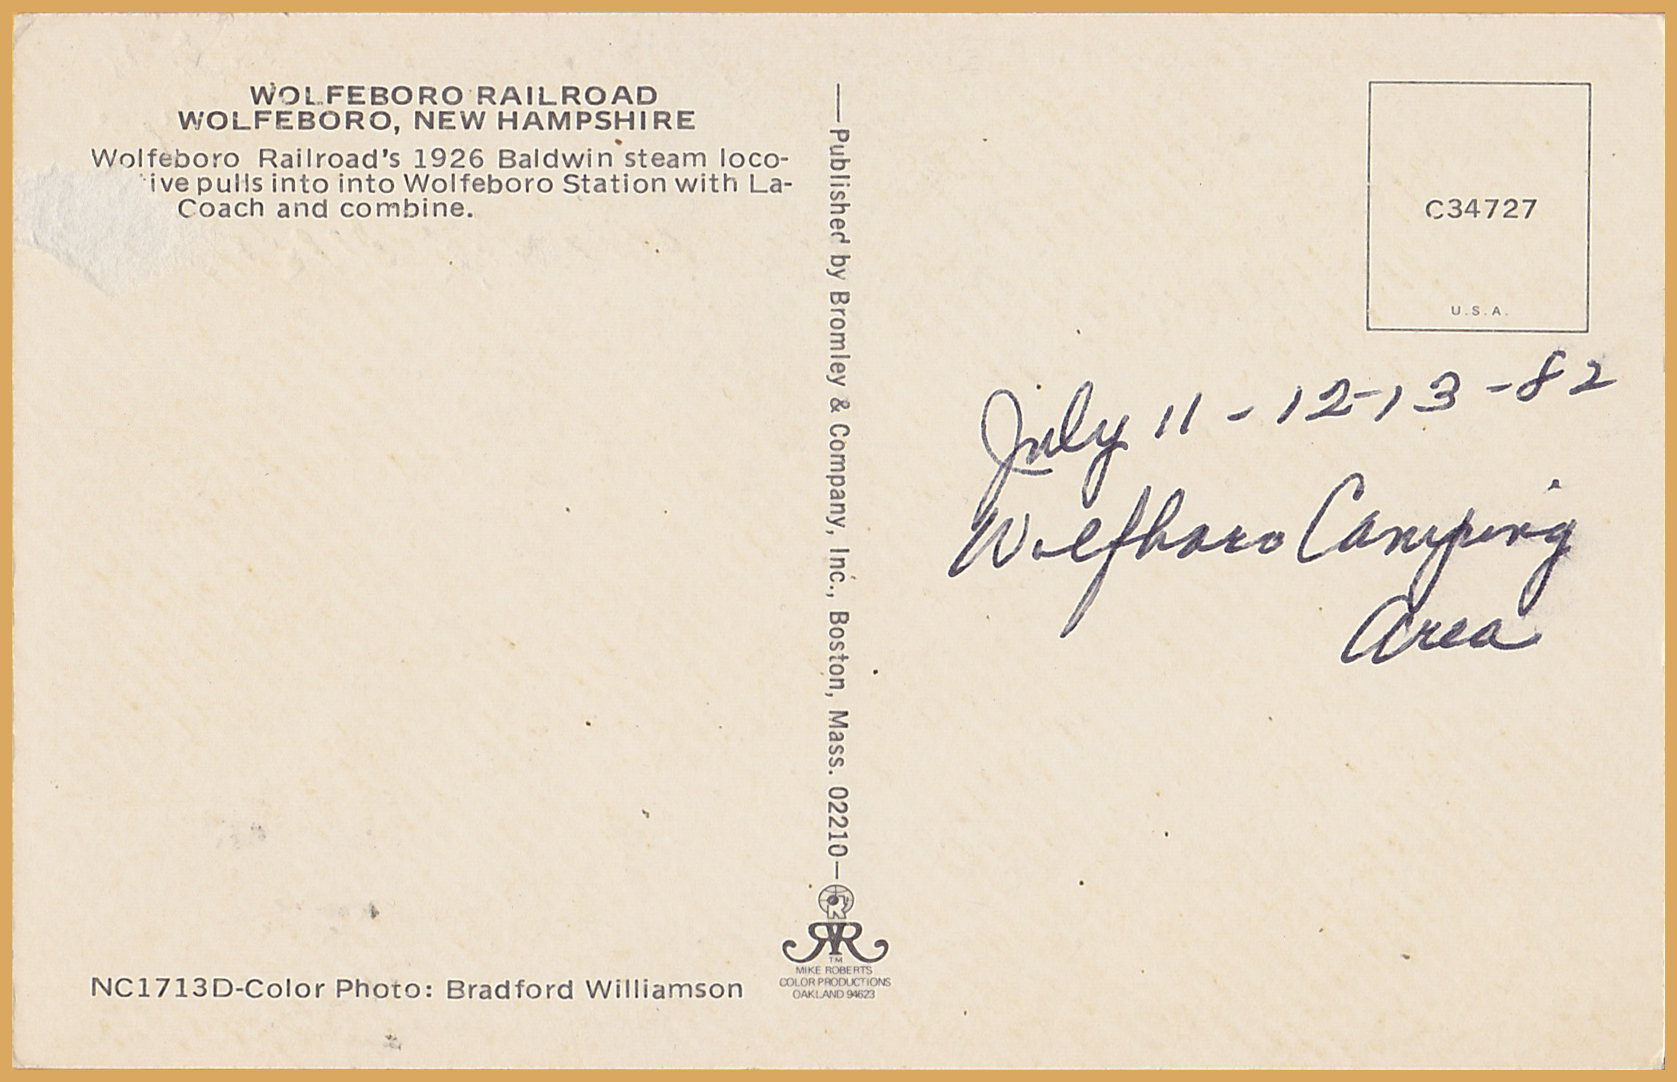 WOLFEBORO RAILROAD
WOLFEBORO, NEW HAMPSHIRE
Wolfeboro Railroad's 1926 Baldwin steam loco-
ive pulls into into Wolfeboro Station with La-
Coach and combine.
NC1713D-Color Photo: Bradford Williamson
Published by Bromley & Company, Inc., Boston, Mass. 02210
TM
MIKE ROBERTS
COLOR PRODUCTIONS
OAKLAND 94623
C34727
U.S.A.
July 11 - 12-13 -82
Wolfboro Camping
Area